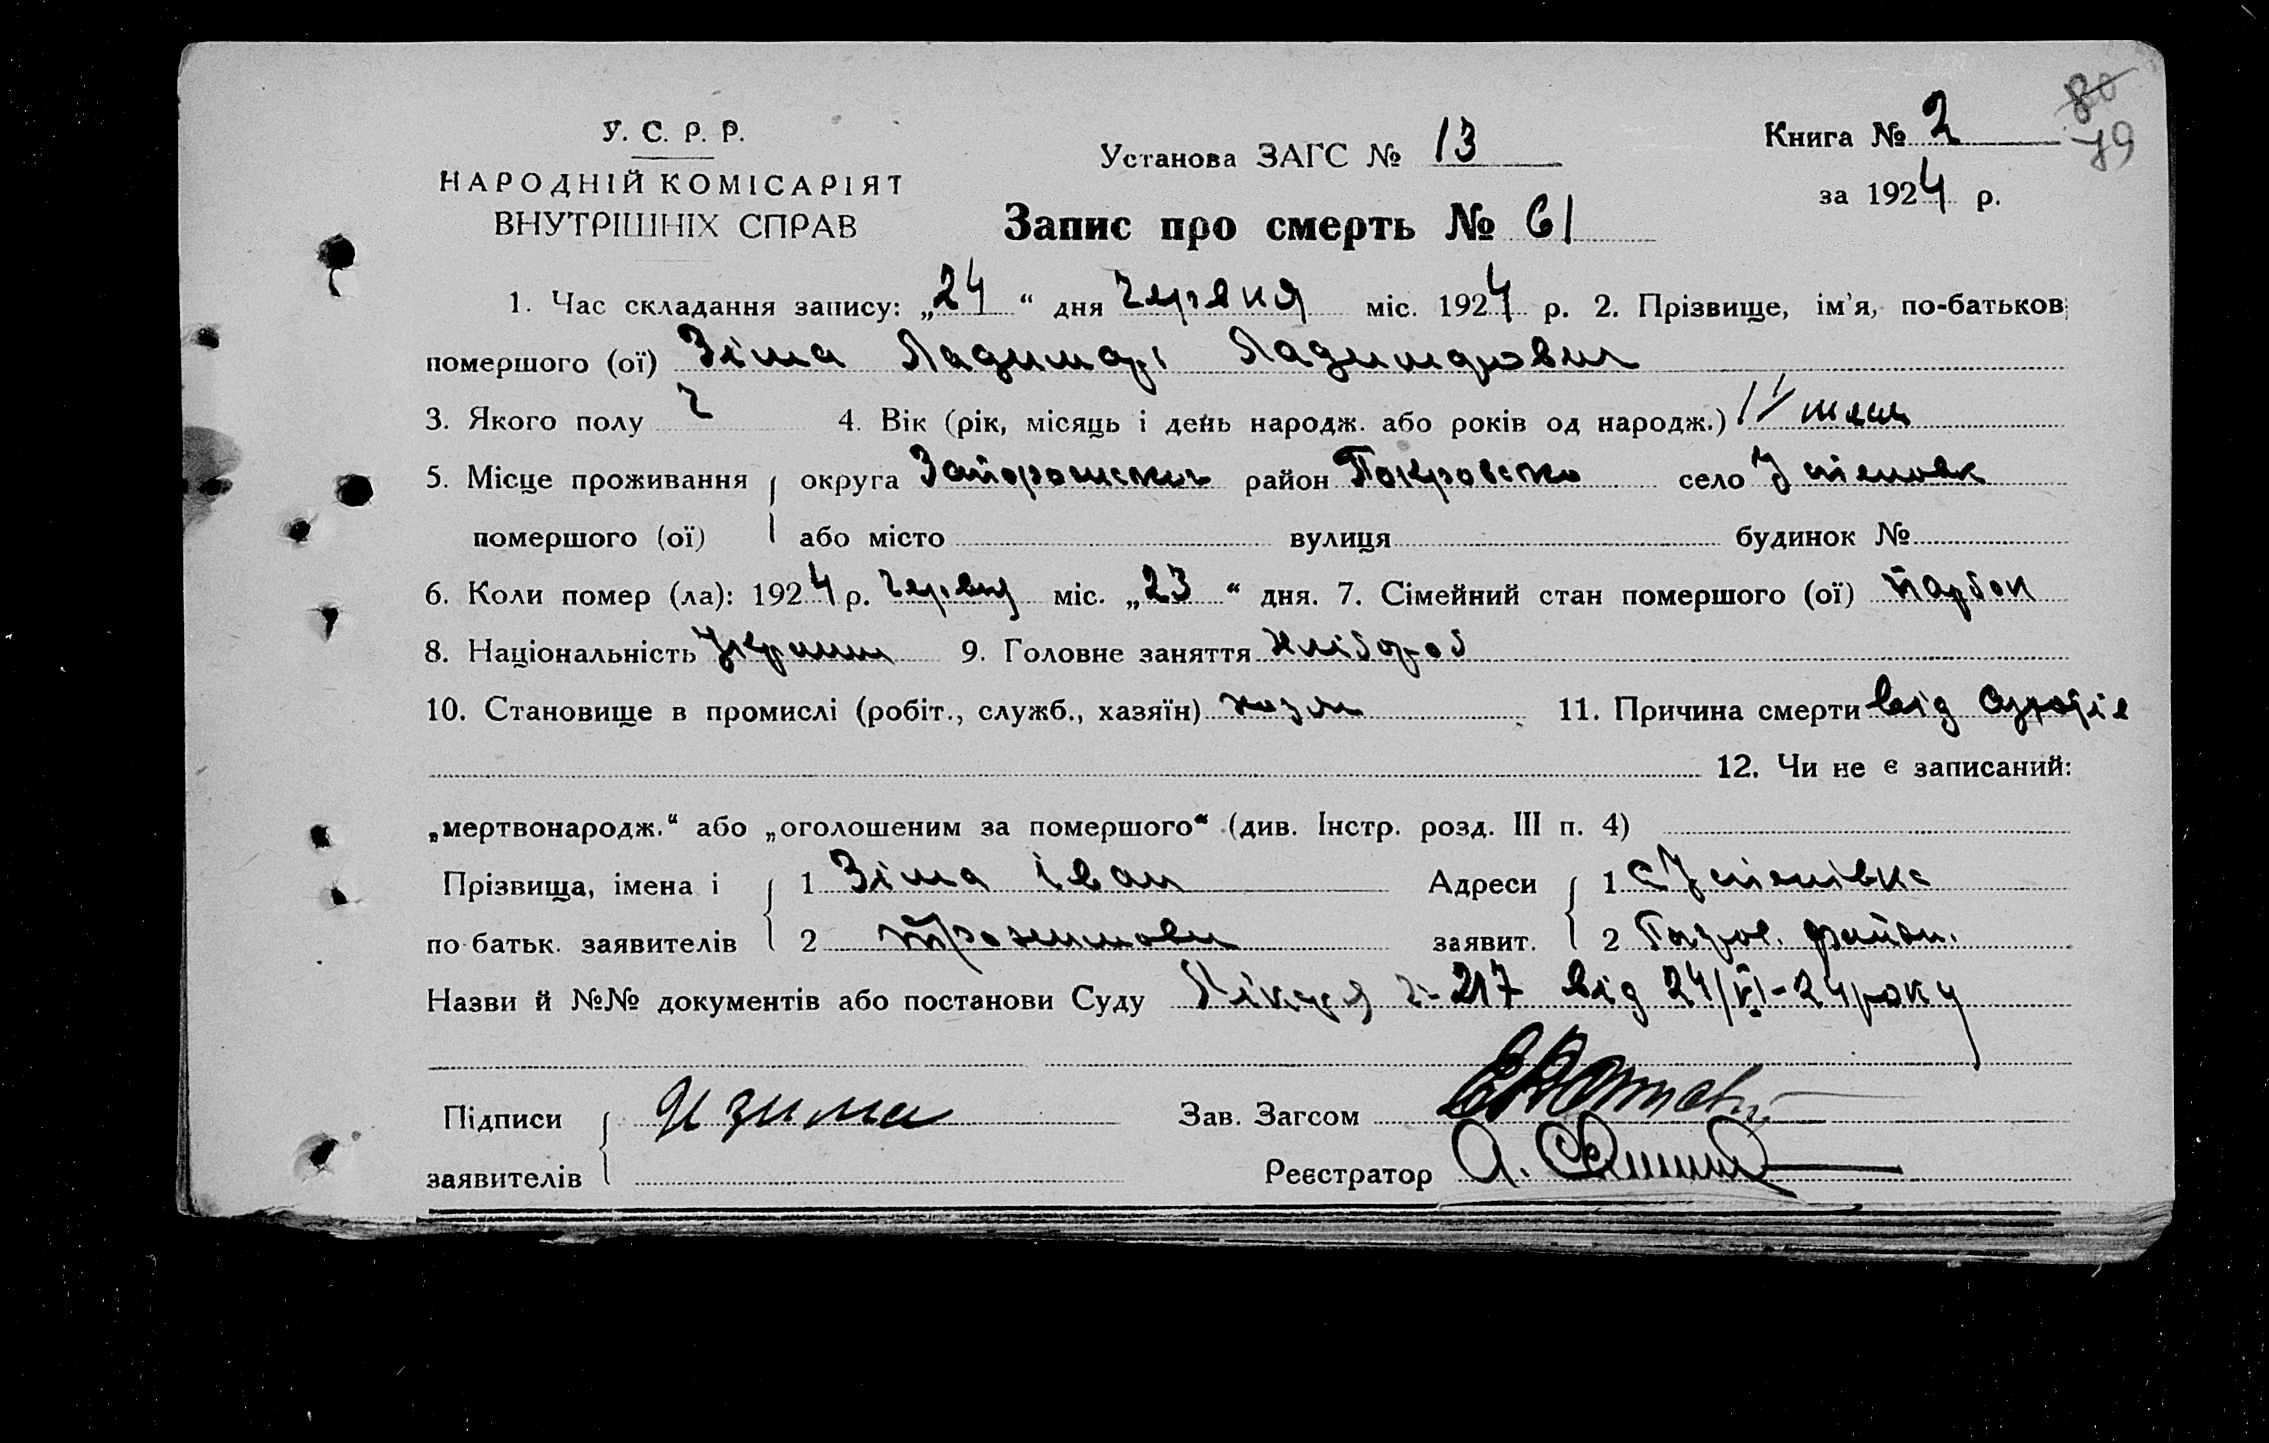 80
У. С. Р. Р.
Книга № 2
79
Установа ЗАГС № 13
НАРОДНІЙ КОМІСАРІЯТ
за 1924 р.
ВНУТРІШНІХ СПРАВ
Запис про смерть № 61
1. Час складання запису: „24“ дня червня міс. 1924 р. 2. Прізвище, ім'я, по-батьков
помершого (ої) Зіма
3. Якого полу ч 4. Вік (рік, місяць і день народж. або років од народж.)
5. Місце проживання округа Запорожська район Покровсько село
помершого (ої) або місто вулиця будинок №
6. Коли помер (ла): 1924 р. червня міс. „23“ дня. 7. Сімейний стан помершого (ої) парбок
8. Національність 9. Головне заняття хлібороб
10. Становище в промислі (робіт., служб., хазяїн) хозя 11. Причина смерти від
12. Чи не є записаний:
„мертвонародж.“ або „оголошеним за помершого“ (див. Інстр. розд. III п. 4)
Прізвища, імена і 1 Зіма Іван Адреси 1 с Успенівка
по батьк. заявителів 2 заявит. 2 район.
Назви й №№ документів або постанови Суду Лікаря 217 від 24/VI-24 року
Підписи И Зима Зав. Загсом
заявителів Реєстратор А.